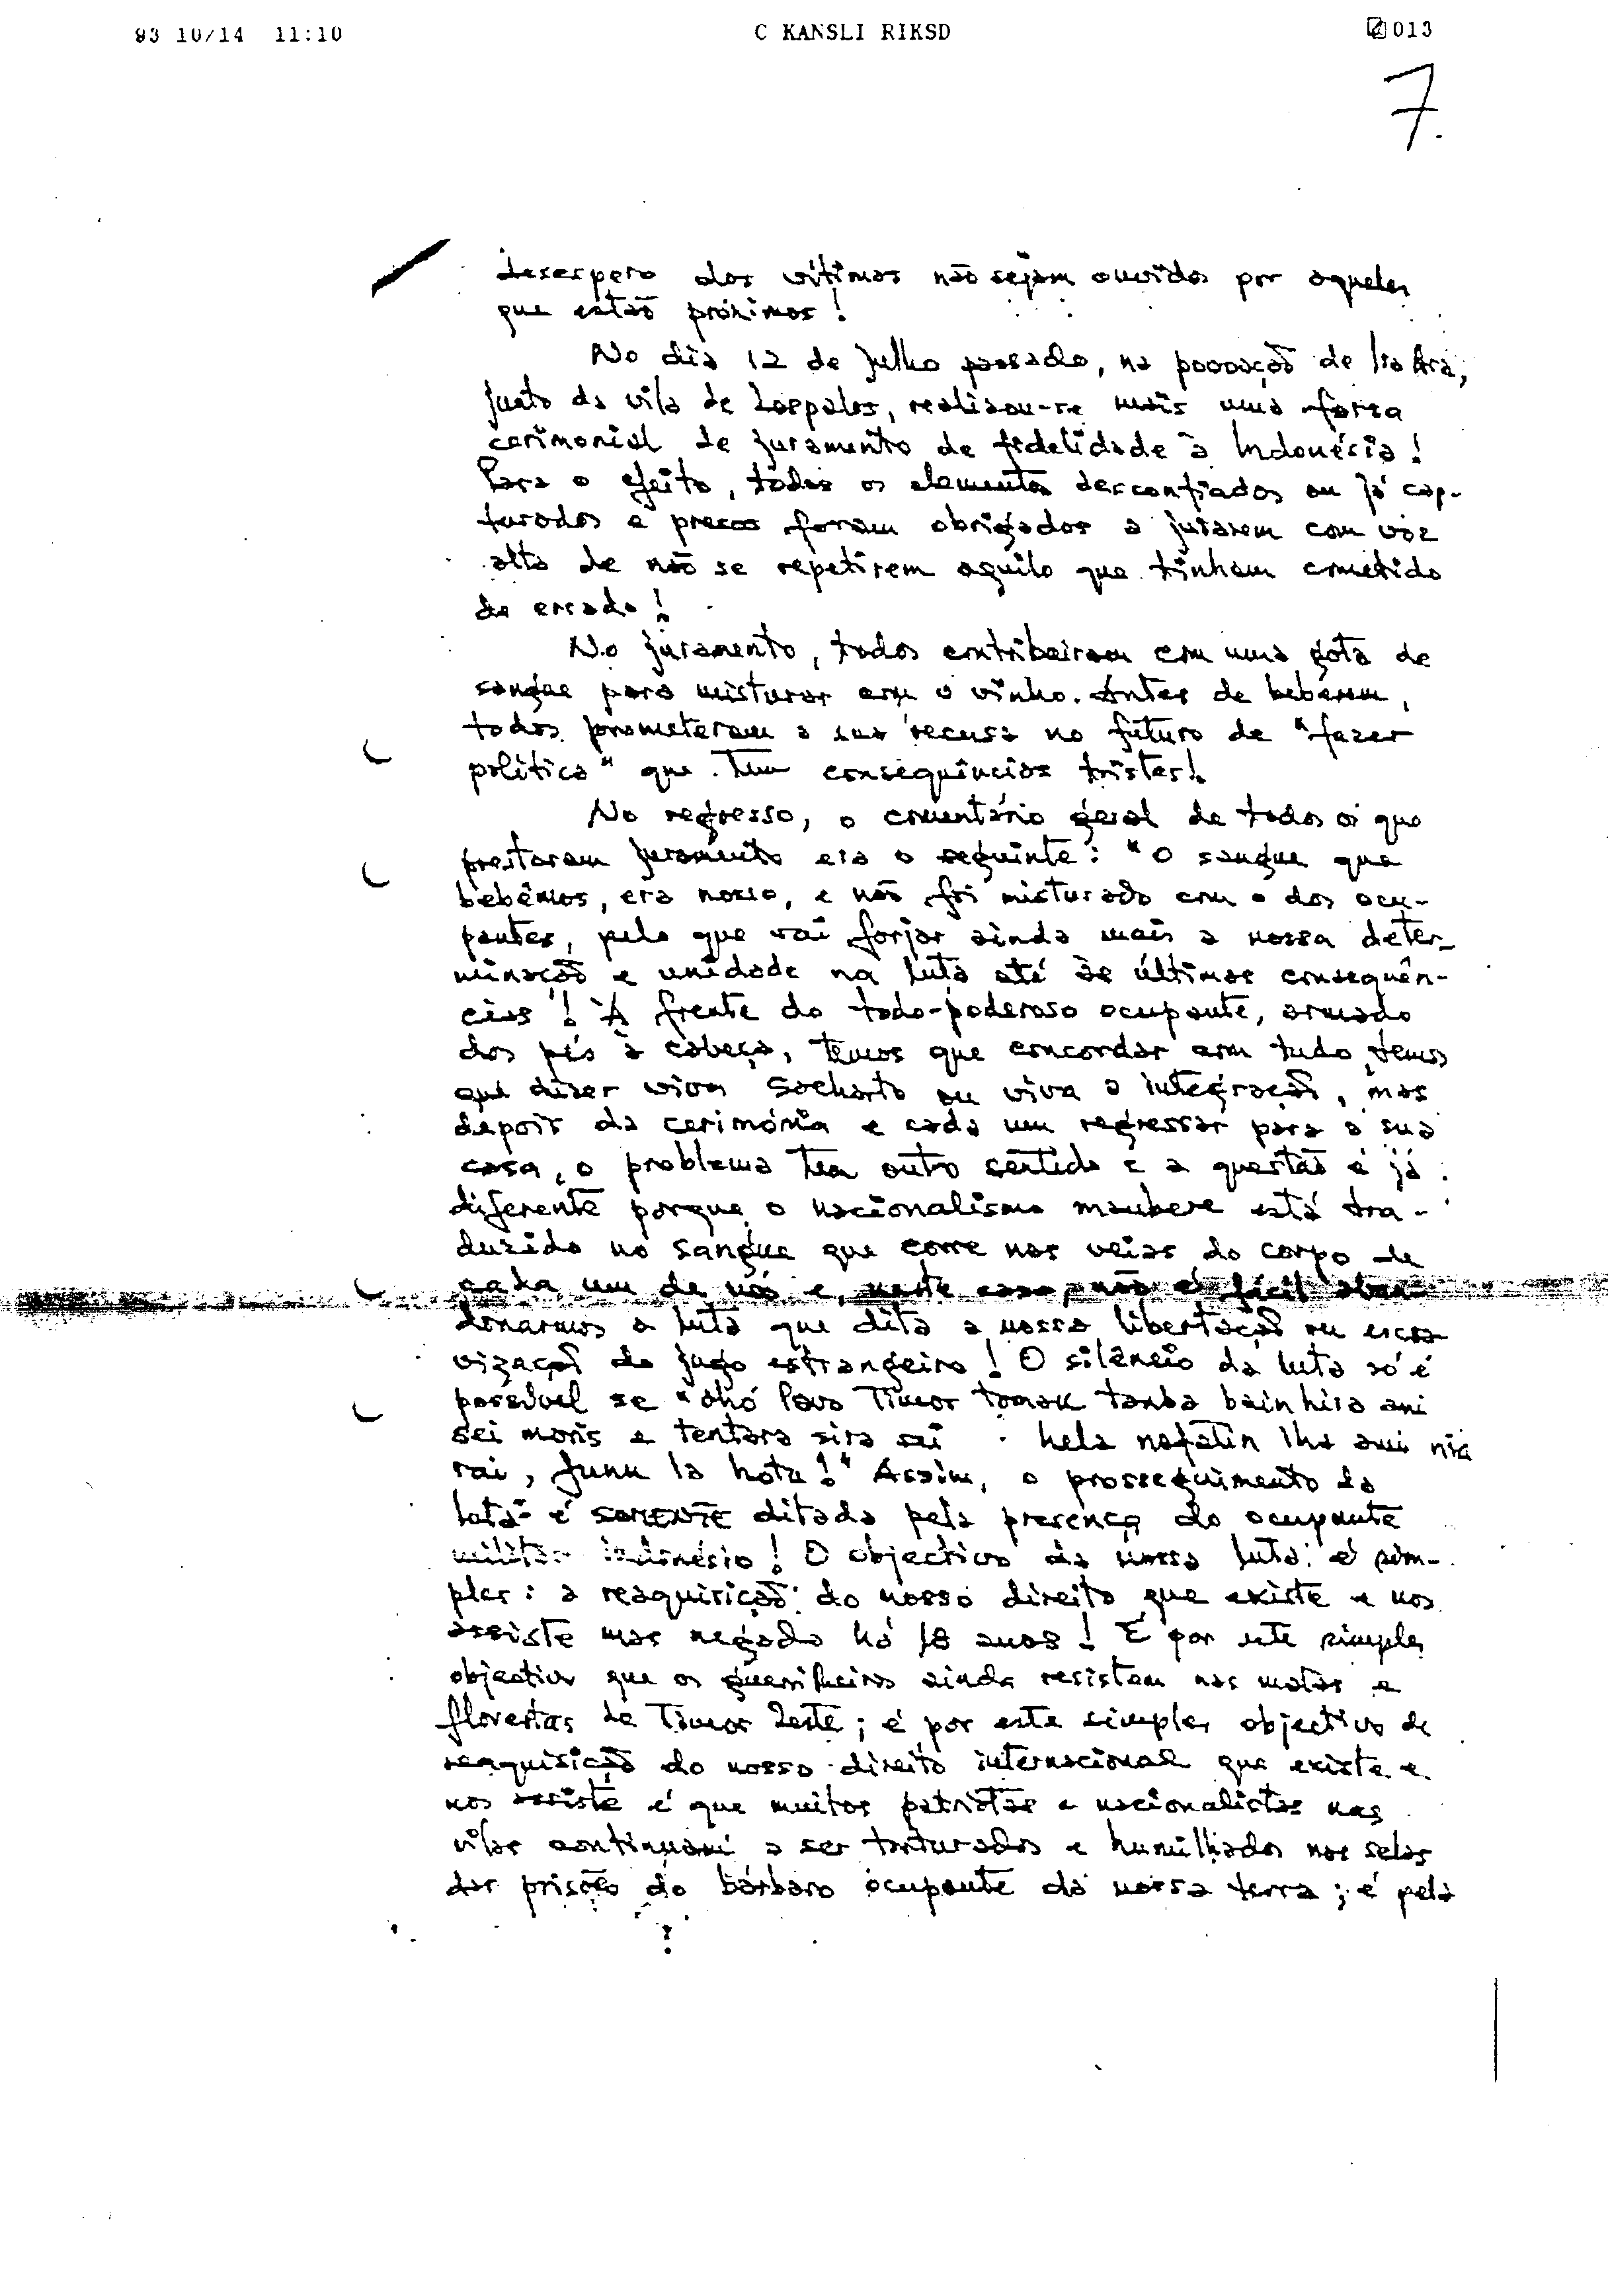 93 10/14 11:10 C KANSLI RIKSD 013
7.
desespero das vítimas não sejam ouvidos por aqueles
que estão próximos!
No dia 12 de Julho passado, na povoação de Ira Ara,
junto da vila de Lospalos, realizou-se mais uma farsa
cerimonial de juramento de fidelidade à Indonésia!
Para o efeito, todos os elementos desconfiados ou já cap-
turados e presos foram obrigados a jurarem com voz
alta de não se repetirem aquilo que tinham cometido
de errado!
No juramento, todos contribuiram com uma gota de
sangue para misturar com o vinho. Antes de bebêrem,
todos prometeram a sua recusa no futuro de "fazer
política" que tem consequências tristes!
No regresso, o comentário geral de todos os que
prestaram juramento era o seguinte: "O sangue que
bebêmos, era nosso, e não foi misturado com o dos ocu-
pantes, pelo que vai forjar ainda mais a nossa deter-
minação e unidade na luta até às últimas consequên-
cias"! À frente do todo-poderoso ocupante, armado
dos pés à cabeça, temos que concordar com tudo, temos
que dizer viva Soeharto ou viva a integração, mas
depois da cerimónia e cada um regressar para a sua
casa, o problema tem outro sentido e a questão é já
diferente porque o nacionalismo maubere está tra-
duzido no sangue que corre nas veias do corpo de
cada um de nós e, neste caso, não é fácil aban-
donarmos a luta que dita a nossa libertação ou escra-
vização do jugo estrangeiro! O silêncio da luta só é
possível se "ohó Povo Timor tomak tanba bainhira ami
sei moris e tentara sira sei hela nafatin iha ami nia
rai, funu la hotu!" Assim, o prosseguimento da
luta é somente ditada pela presença do ocupante
militar indonésio! O objectivo da nossa luta é sim-
ples: a reaquisição do nosso direito que existe e nos
assiste mas negado há 18 anos! É por este simples
objectivo que os guerrilheiros ainda resistem nas matas e
florestas de Timor Leste; é por este simples objectivo de
reaquisição do nosso direito internacional que existe e
nos assiste é que muitos patriotas e nacionalistas nas
vilas continuam a ser torturados e humilhados nas selas
das prisões do bárbaro ocupante da nossa terra; é pela